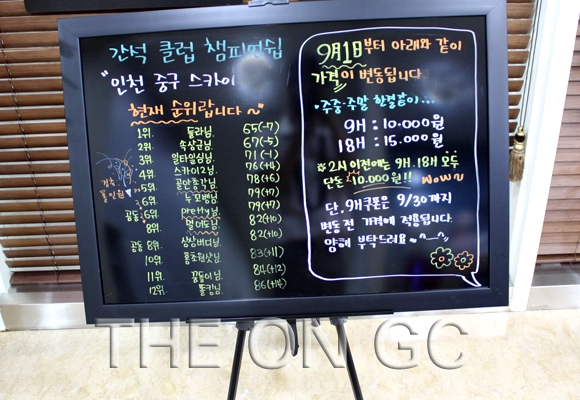 간석 클럽 챔피언쉽
"인천 중구 스카이
현재 순위랍니다~"
1위. 돌라님. 65(-7)
2위. 속상군님. 67(-5)
3위. 일타일심님. 71(-1)
4위. 스카이2님. 76(+4)
5위. 공만총각님. 78(+6)
누꼬병님. 79(+7)
공동 6위. pretty님. 79(+7)
8위. 82(+10)
공동 8위. 상상버디님. 82(+10)
10위. 홍초원샷님. 83(+11)
11위. 꿍돌이님. 84(+12)
12위. 똘킹님. 86(+14)
9月1日부터 아래와 같이
가격이 변동됩니다
•주중·주말 한결같이...
9H : 10.000원
18H : 15.000원
※2시 이전에는 9H. 18H 모두
단돈 10.000원!! Wow~
단, 9H쿠폰은 9/30까지
변동 전 가격에 적용됩니다.
양해 부탁드려요~^_^
THE ON GC